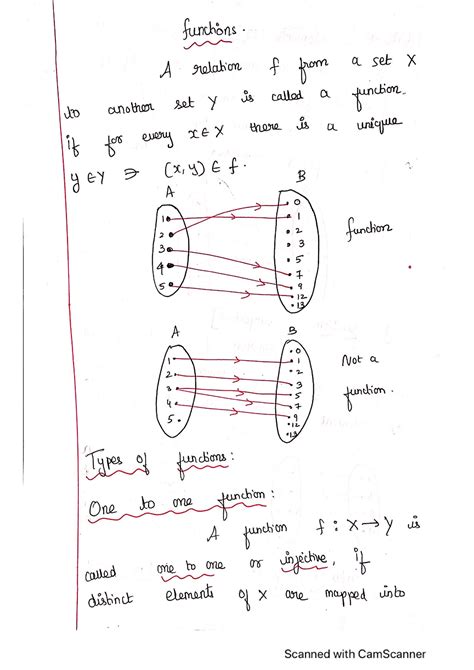 functions.
A relation f from a set X
to another set Y is called a function.
if for every x ∈ X there is a unique
y ∈ Y ∋ (x, y) ∈ f.
A B
1 2 3 4 5
0 1 2 3 5 7 9 12 13
function
A B
1 2 3 4 5
0 1 2 3 5 7 9 12 13
Not a
function.
Types of functions:
One to one function:
A function f : X → Y is
called one to one or injective, if
distinct elements of X are mapped into
Scanned with CamScanner